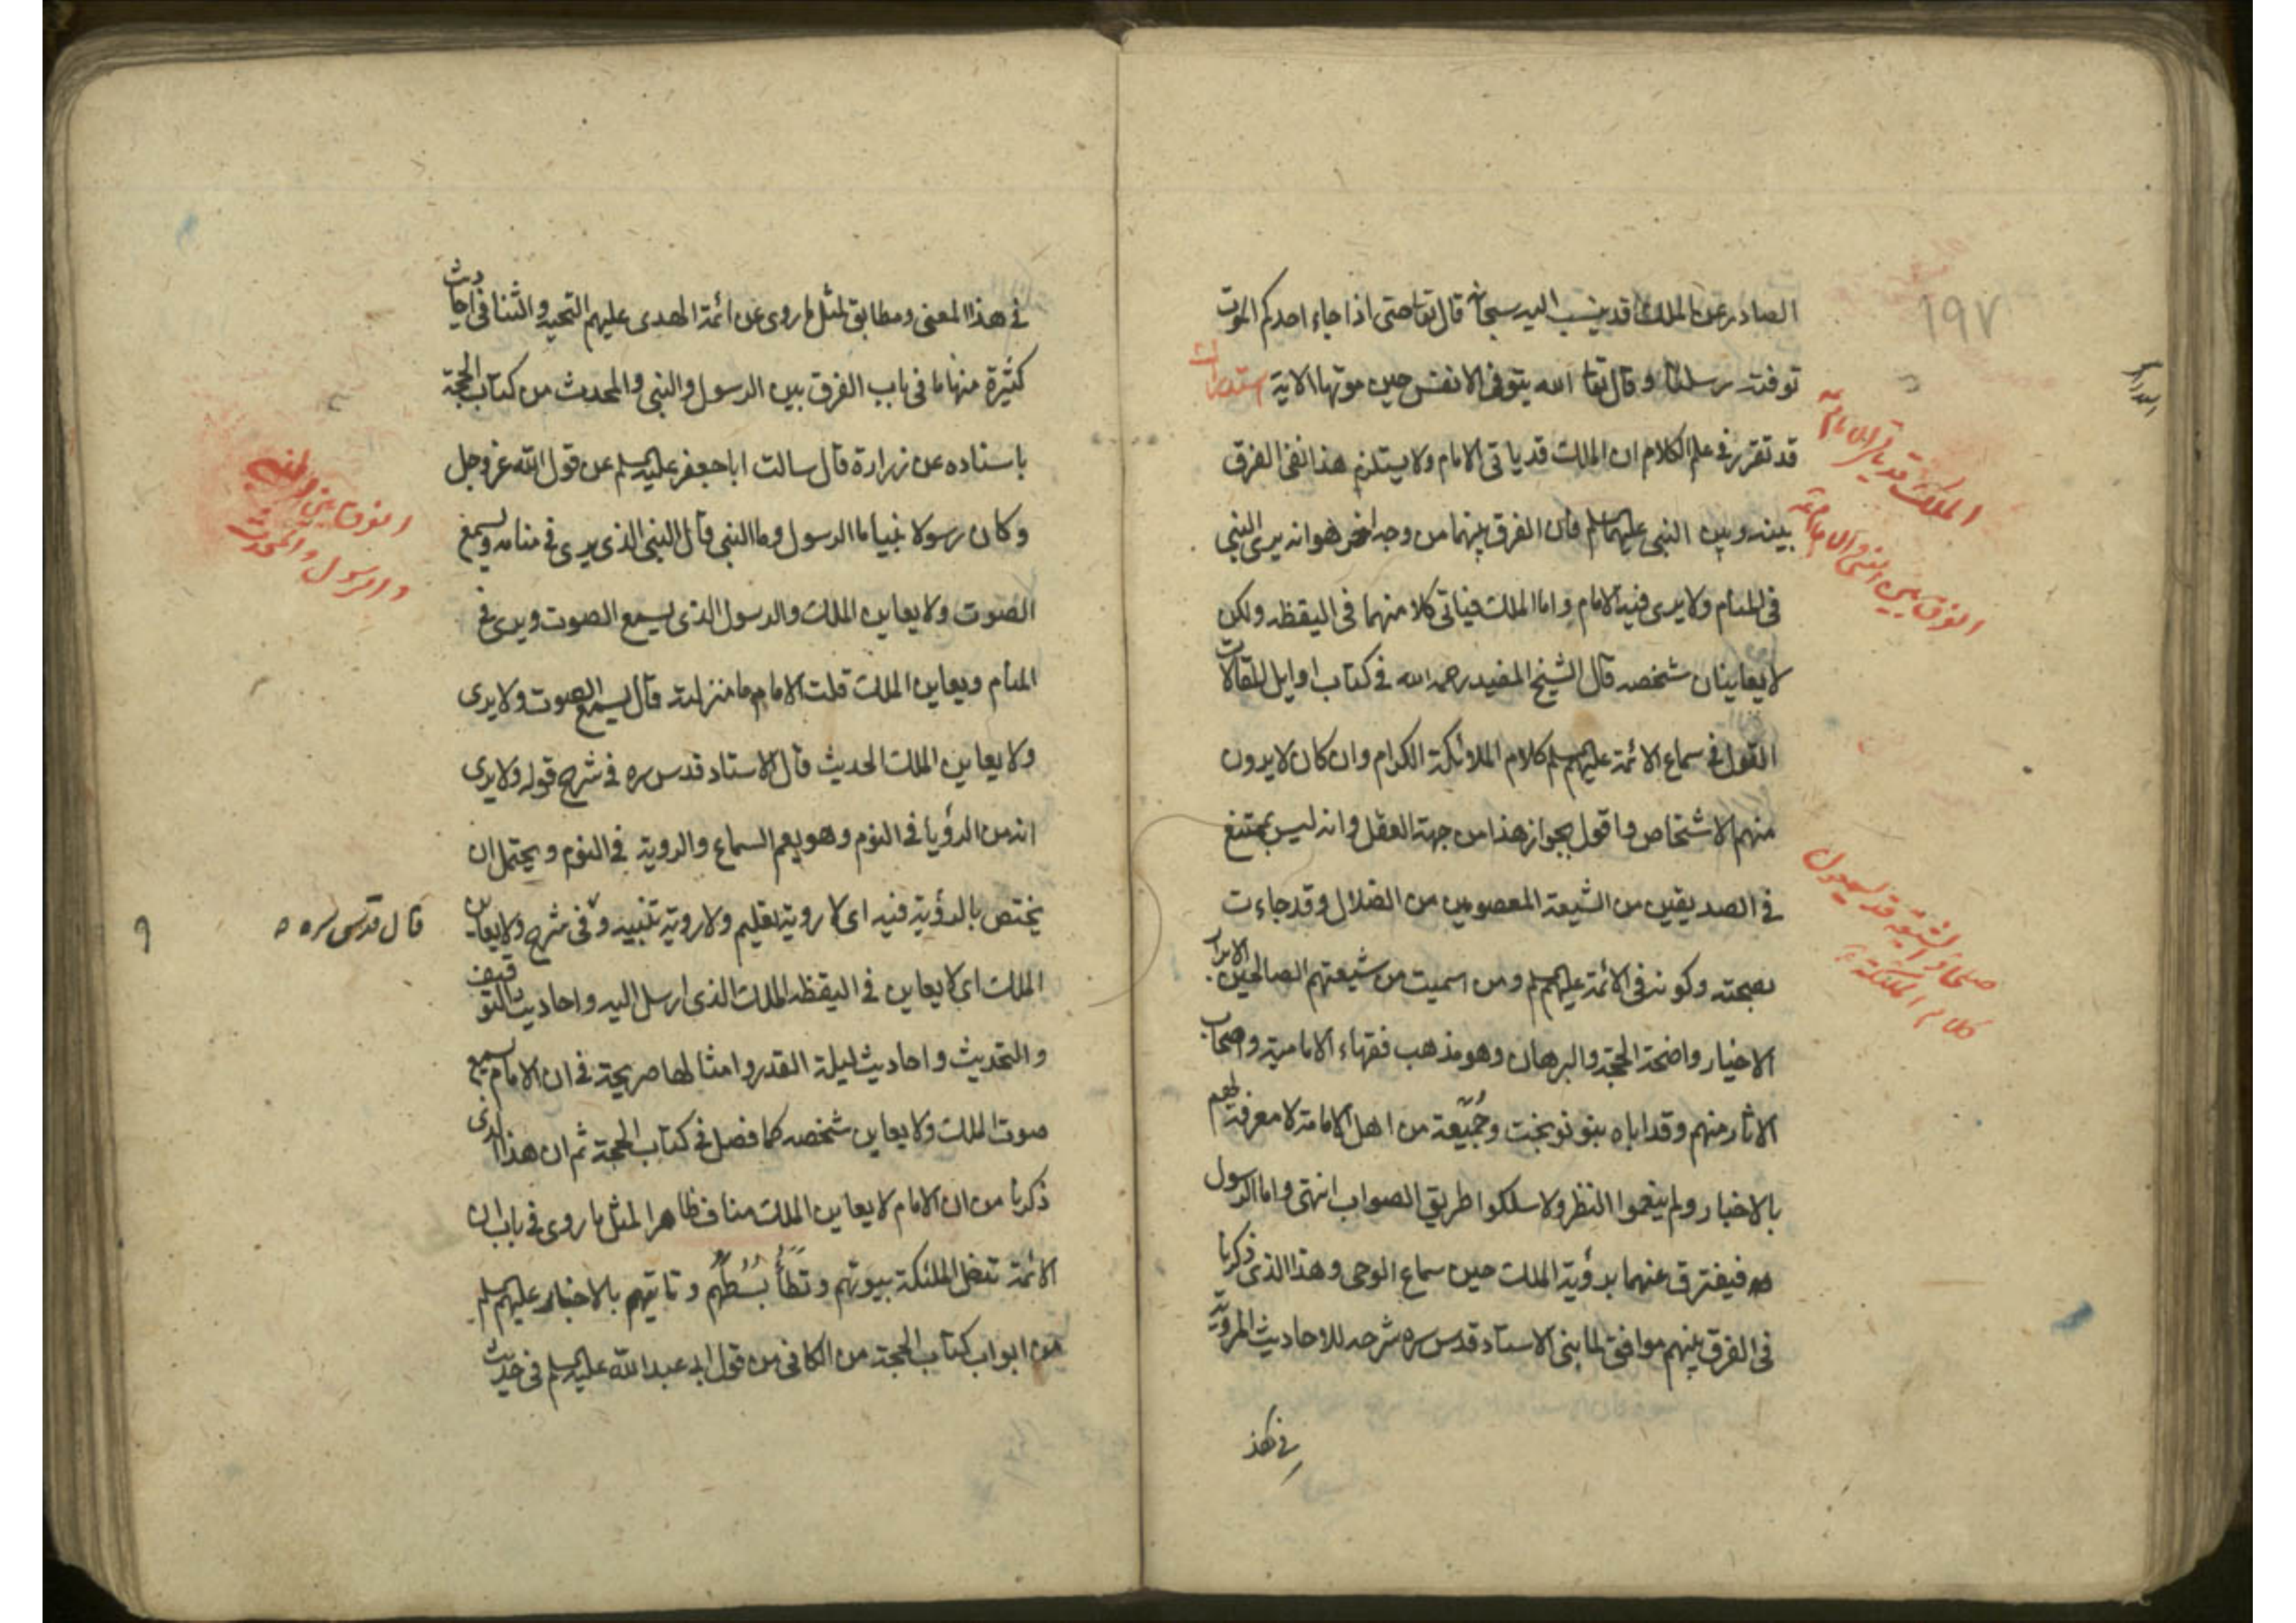 ١٩٧
الصادر عن الملك قد ينسب اليه سبحانه قال تعا حتى اذا جاء احدكم الموت
توفته رسلنا و قال تعا الله يتوفى الانفس حين موتها الاية
قد تقرر فى علم الكلام ان الملك قد ياتى الامام ولا يستلزم هذا نفى الفرق
بينه وبين النبى عليهما السلم فان الفرق بينهما من وجه اخر هو انه يرى النبى
فى المنام ولا يرى فيه الامام واما الملك فياتى كلا منهما فى اليقظه ولكن
لا يعاينان شخصه قال الشيخ المفيد رحمه الله فى كتاب اوايل المقالات
القول فى سماع الائمة عليهم السلم كلام الملائكة الكرام وان كان لا يرون
منهم الاشخاص واقول بجواز هذا من جهة العقل وانه ليس بممتنع
فى الصديقين من الشيعة المعصومين من الضلال وقد جاءت
بصحته وكونه فى الائمة عليهم السلم ومن اسميت من شيعتهم الصالحين الابرار
الاخيار واضحة الحجة والبرهان وهو مذهب فقهاء الامامية واصحاب
الاثار منهم وقد اباه بنو نوبخت وجميعة من اهل الامامة لا معرفة لهم
بالاخبار ولم ينعموا النظر ولا سلكوا طريق الصواب انتهى واما الرسول
فيفترق عنهما برؤية الملك حين سماع الوحى وهذا الذى ذكرنا
فى الفرق بينهم موافق لما بنى الاستاد قدس سره شرحه للاحاديث المروية
فى هذ
الملك قد ياتى الامام
الفرق بين النبى والامام
صلحاء الشيعة قد يسمعون
كلام الملئكة
فى هذا المعنى ومطابق لمثل ما روى عن ائمة الهدى عليهم التحية والثنا فى احاديث
كثيرة منها ما فى باب الفرق بين الرسول والنبى والمحدث من كتاب الحجة
باسناده عن زرارة قال سالت ابا جعفر عليه السلم عن قول الله عز وجل
وكان رسولا نبيا ما الرسول وما النبى قال النبى الذى يرى فى منامه ويسمع
الصوت ولا يعاين الملك والرسول الذى يسمع الصوت ويرى فى
المنام ويعاين الملك قلت الامام ما منزلته قال يسمع الصوت ولا يرى
ولا يعاين الملك الحديث قال الاستاد قدس سره فى شرح قوله ولا يرى
انه من الرؤيا فى النوم وهو يعم السماع والروية فى النوم ويحتمل ان
يختص بالرؤية فيه اى لا روية تعليم ولا روية تنبيه وفى شرح ولا يعاين
الملك اى لا يعاين فى اليقظه الملك الذى ارسل اليه واحاديث التوقيف
والتحديث واحاديث ليلة القدر وامثالها صريحة فى ان الامام يسمع
صوت الملك ولا يعاين شخصه كما فصل فى كتاب الحجة ثم ان هذا الذى
ذكرنا من ان الامام لا يعاين الملك مناف ظاهرا لمثل ما روى فى باب ان
الائمة تدخل الملئكة بيوتهم وتَطَأُ بُسُطَهُم وتاتيهم بالاخبار عليهم السلم
من ابواب كتاب الحجة من الكافى من قول ابى عبد الله عليه السلم فى حديث
الفرق بين النبى
والرسول والمحدث
قال قدس سره